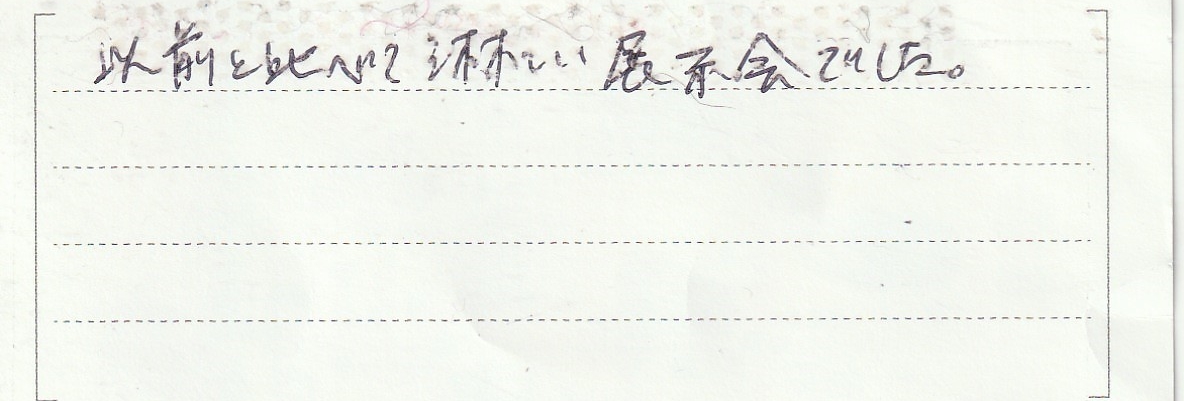 以前と比べて淋しい展示会でした。